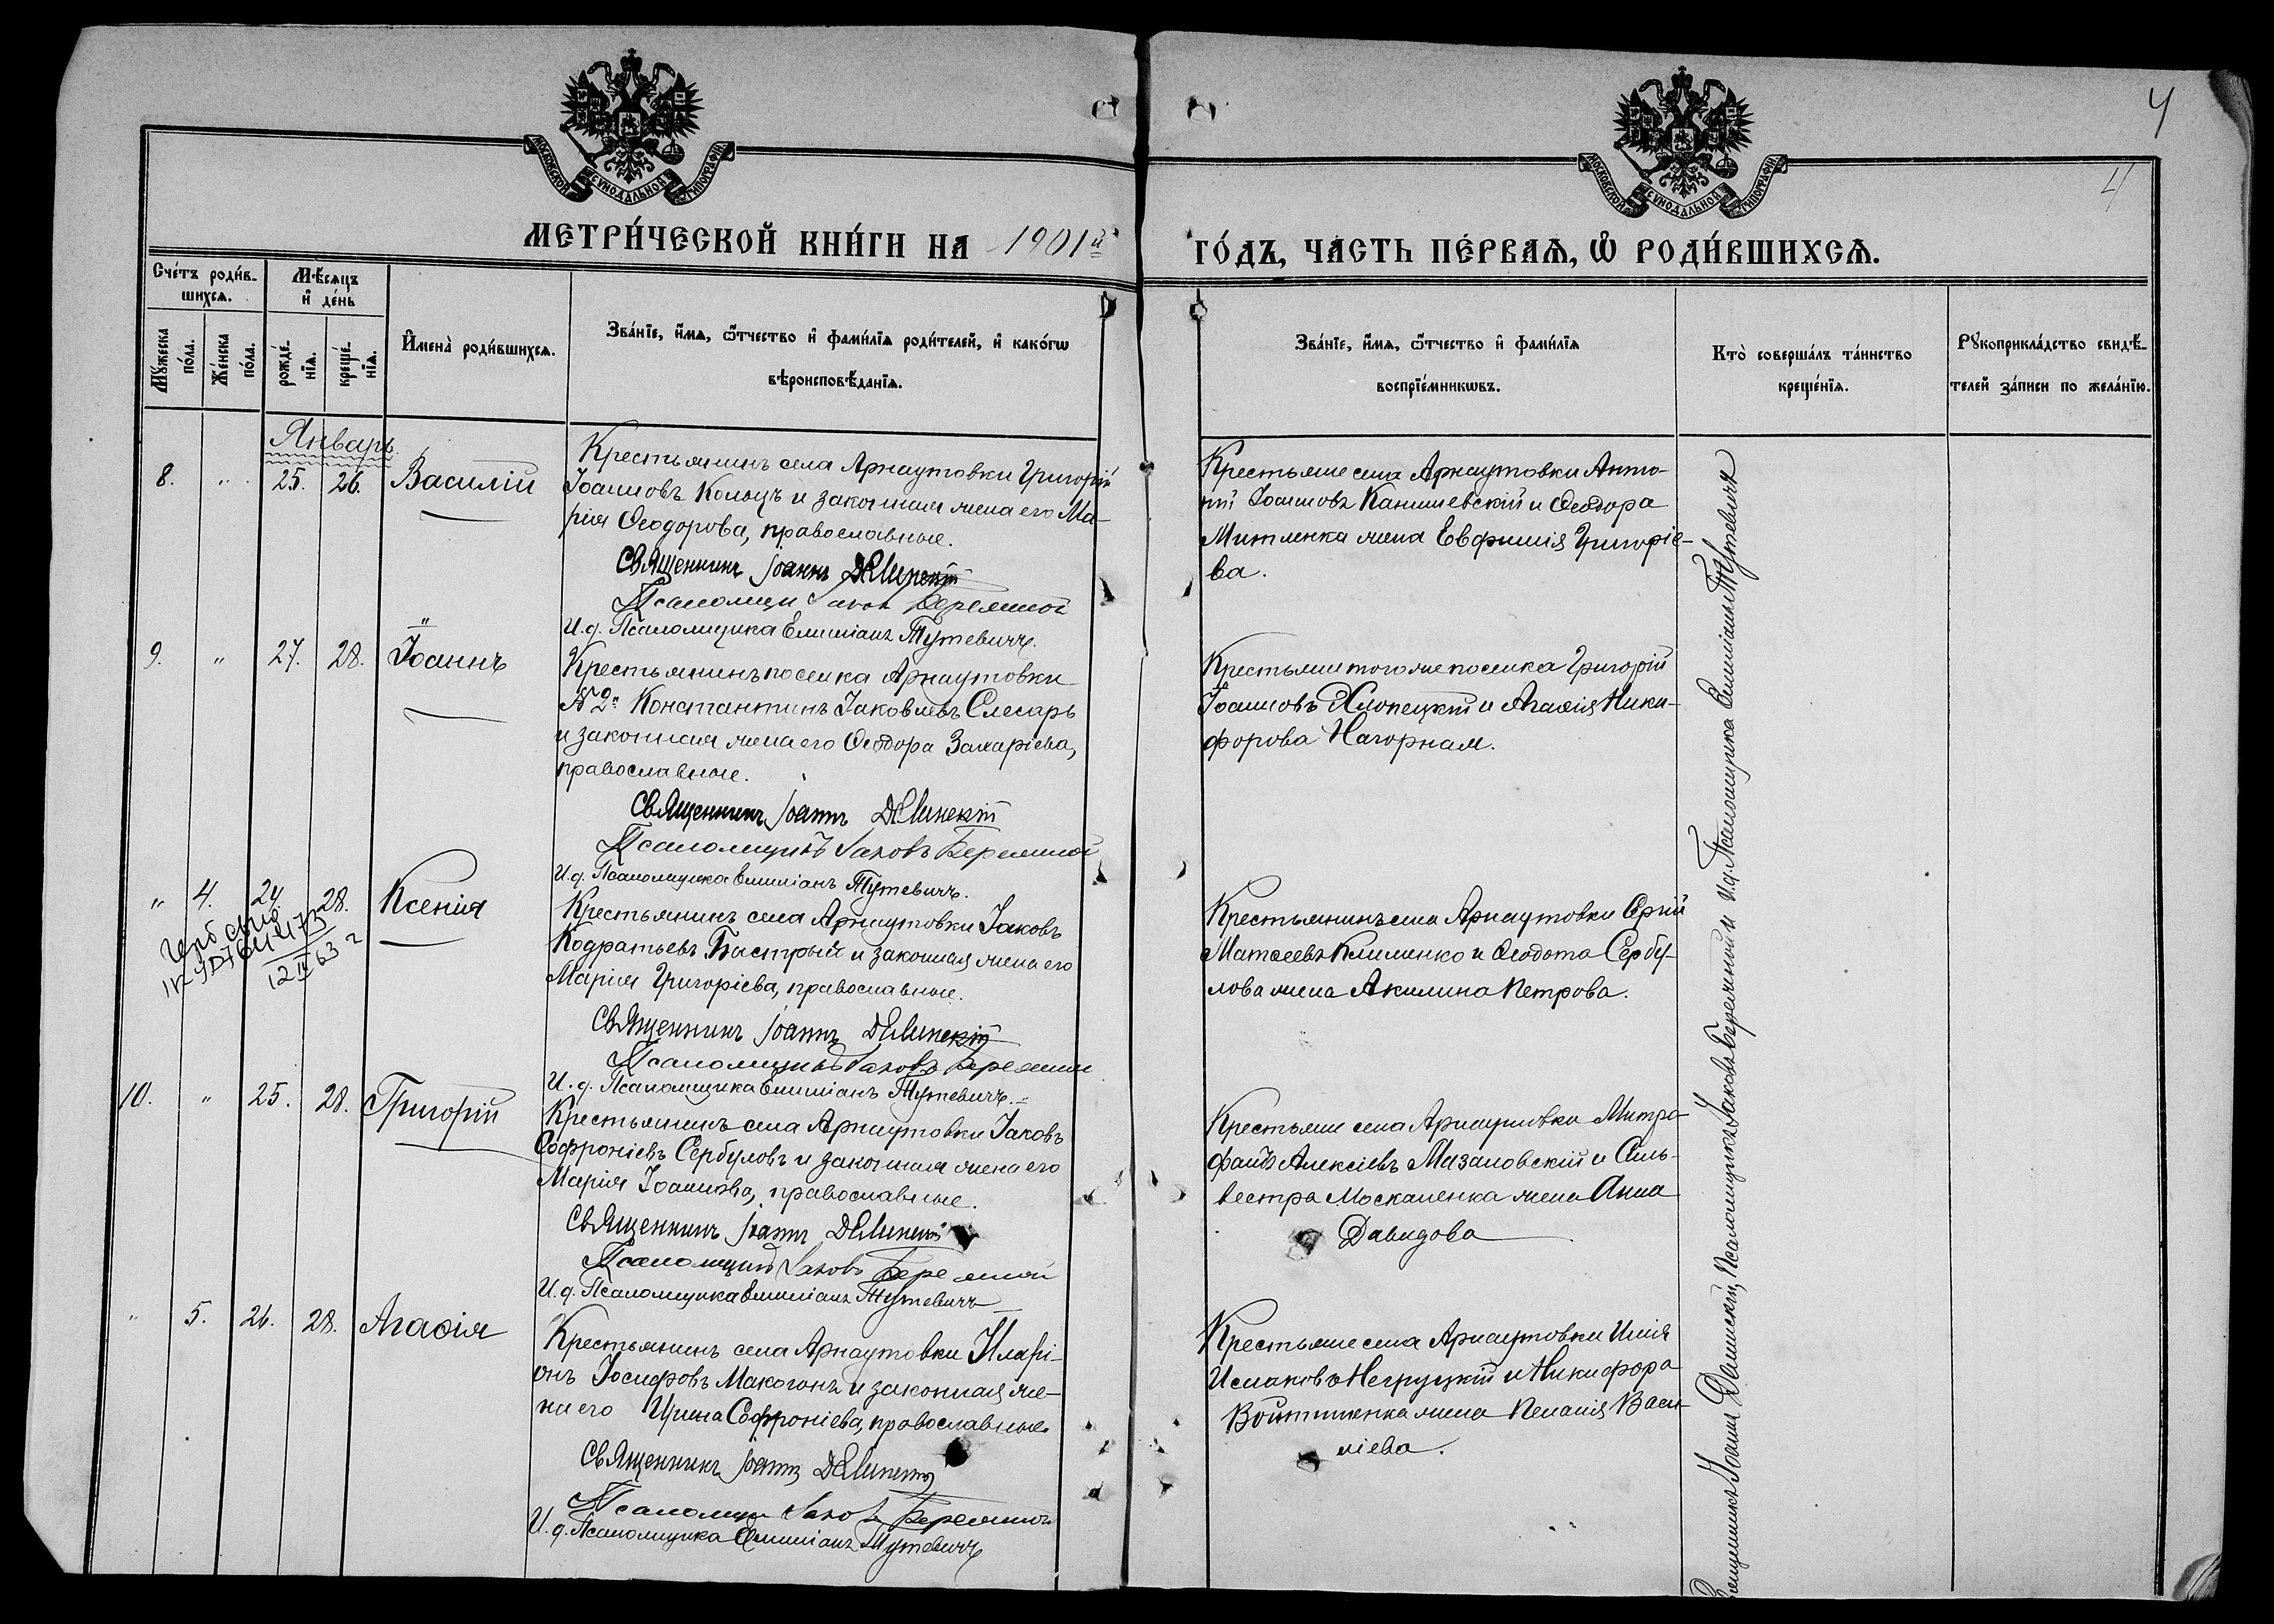 4
4
МОСКОВСКОЙ СУНОДАЛЬНОЙ ТИПОГРАФІИ
МОСКОВСКОЙ СУНОДАЛЬНОЙ ТИПОГРАФІИ
МЕТРИ́ЧЕСКОЙ КНИ́ГИ НА 1901й
ГО́ДЪ, ЧА́СТЬ ПЕ́РВАѦ, Ѡ҆ РОДИ́ВШИХСѦ.
Сче́тъ роди́в-
шихсѧ.
Мѣ́сѧцъ
и҆ де́нь
Мꙋ́жеска
по́ла.
Же́нска
по́ла.
рожде́-
нїѧ.
креще́-
нїѧ.
И҆мена̀ роди́вшихсѧ.
Зва́нїе, и҆́мѧ, ѻ҆́тчество и҆ фами́лїѧ роди́телей, и҆ како́гѡ
вѣроисповѣ́данїѧ.
Зва́нїе, и҆́мѧ, ѻ҆́тчество и҆ фами́лїѧ
воспрїе́мникѡвъ.
Кто̀ соверша́лъ та́инство
креще́нїѧ.
Рꙋкоприкла́дство свидѣ́-
телей за́писи по жела́нїю.
Январь.
8. " 25. 26. Василій
Крестьянинъ села Арнаутовки Григорій
Іоанновъ Кольцъ и законная жена его Ма-
рія Ѳеодорова, православные.
Священникъ Іоаннъ Далинскій
Псаломщикъ Іаковъ Бережной
И.д. Псаломщика Емиліанъ Тутевичъ.
Крестьяне села Арнаутовки Анто-
ній Іоанновъ Канишевскій и Ѳеодора
Митленка жена Евфимія Григоріе-
ва.
9. " 27. 28. Іоаннъ
Крестьянинъ поселка Арнаутовки
№ 2й Константинъ Іаковлевъ Слесарь
и законная жена его Ѳеодора Захаріева,
православные.
Священникъ Іоаннъ Далинскій
Псаломщикъ Іаковъ Бережной
И.д. Псаломщика Емиліанъ Тутевичъ.
Крестьяне того же поселка Григорій
Іоанновъ Хлопецкій и Агаѳія Ники-
форова Нагорная.
" 4. 24. 28. Ксенія
12 II 63 г
Крестьянинъ села Арнаутовки Іаковъ
Кодратьевъ Быстрый и законная жена его
Марія Григоріева, православные.
Священникъ Іоаннъ Далинскій
Псаломщикъ Іаковъ Бережной
И.д. Псаломщика Емиліанъ Тутевичъ.
Крестьянинъ села Арнаутовки Сергій
Матѳеевъ Клименко и Ѳеодота Сербу-
лова жена Акилина Петрова.
10. " 25. 28. Григорій
Крестьянинъ села Арнаутовки Іаковъ
Софроніевъ Сербуловъ и законная жена его
Марія Іоаннова, православные.
Священникъ Іоаннъ Далинскій
Псаломщикъ Іаковъ Бережной
И.д. Псаломщика Емиліанъ Тутевичъ
Крестьяне села Арнаутовки Митро-
фанъ Алексіевъ Мазановскій и Силь-
вестра Москаленка жена Анна
Давидова
" 5. 26. 28. Агаѳія
Крестьянинъ села Арнаутовки Иларі-
онъ Іосифовъ Макогонъ и законная же-
на его Ирина Софроніева, православные.
Священникъ Іоаннъ Далинскій
Псаломщикъ Іаковъ Бережной
И.д. Псаломщика Емиліанъ Тутевичъ
Крестьяне села Арнаутовки Илія
Исааковъ Негруцкій и Никифора
Войтпленка жена Пелагія Васи-
ліева.
Священникъ Іоаннъ Далинскій, Псаломщикъ Іаковъ Бережной и И.д. Псаломщика Емиліанъ Тутевичъ